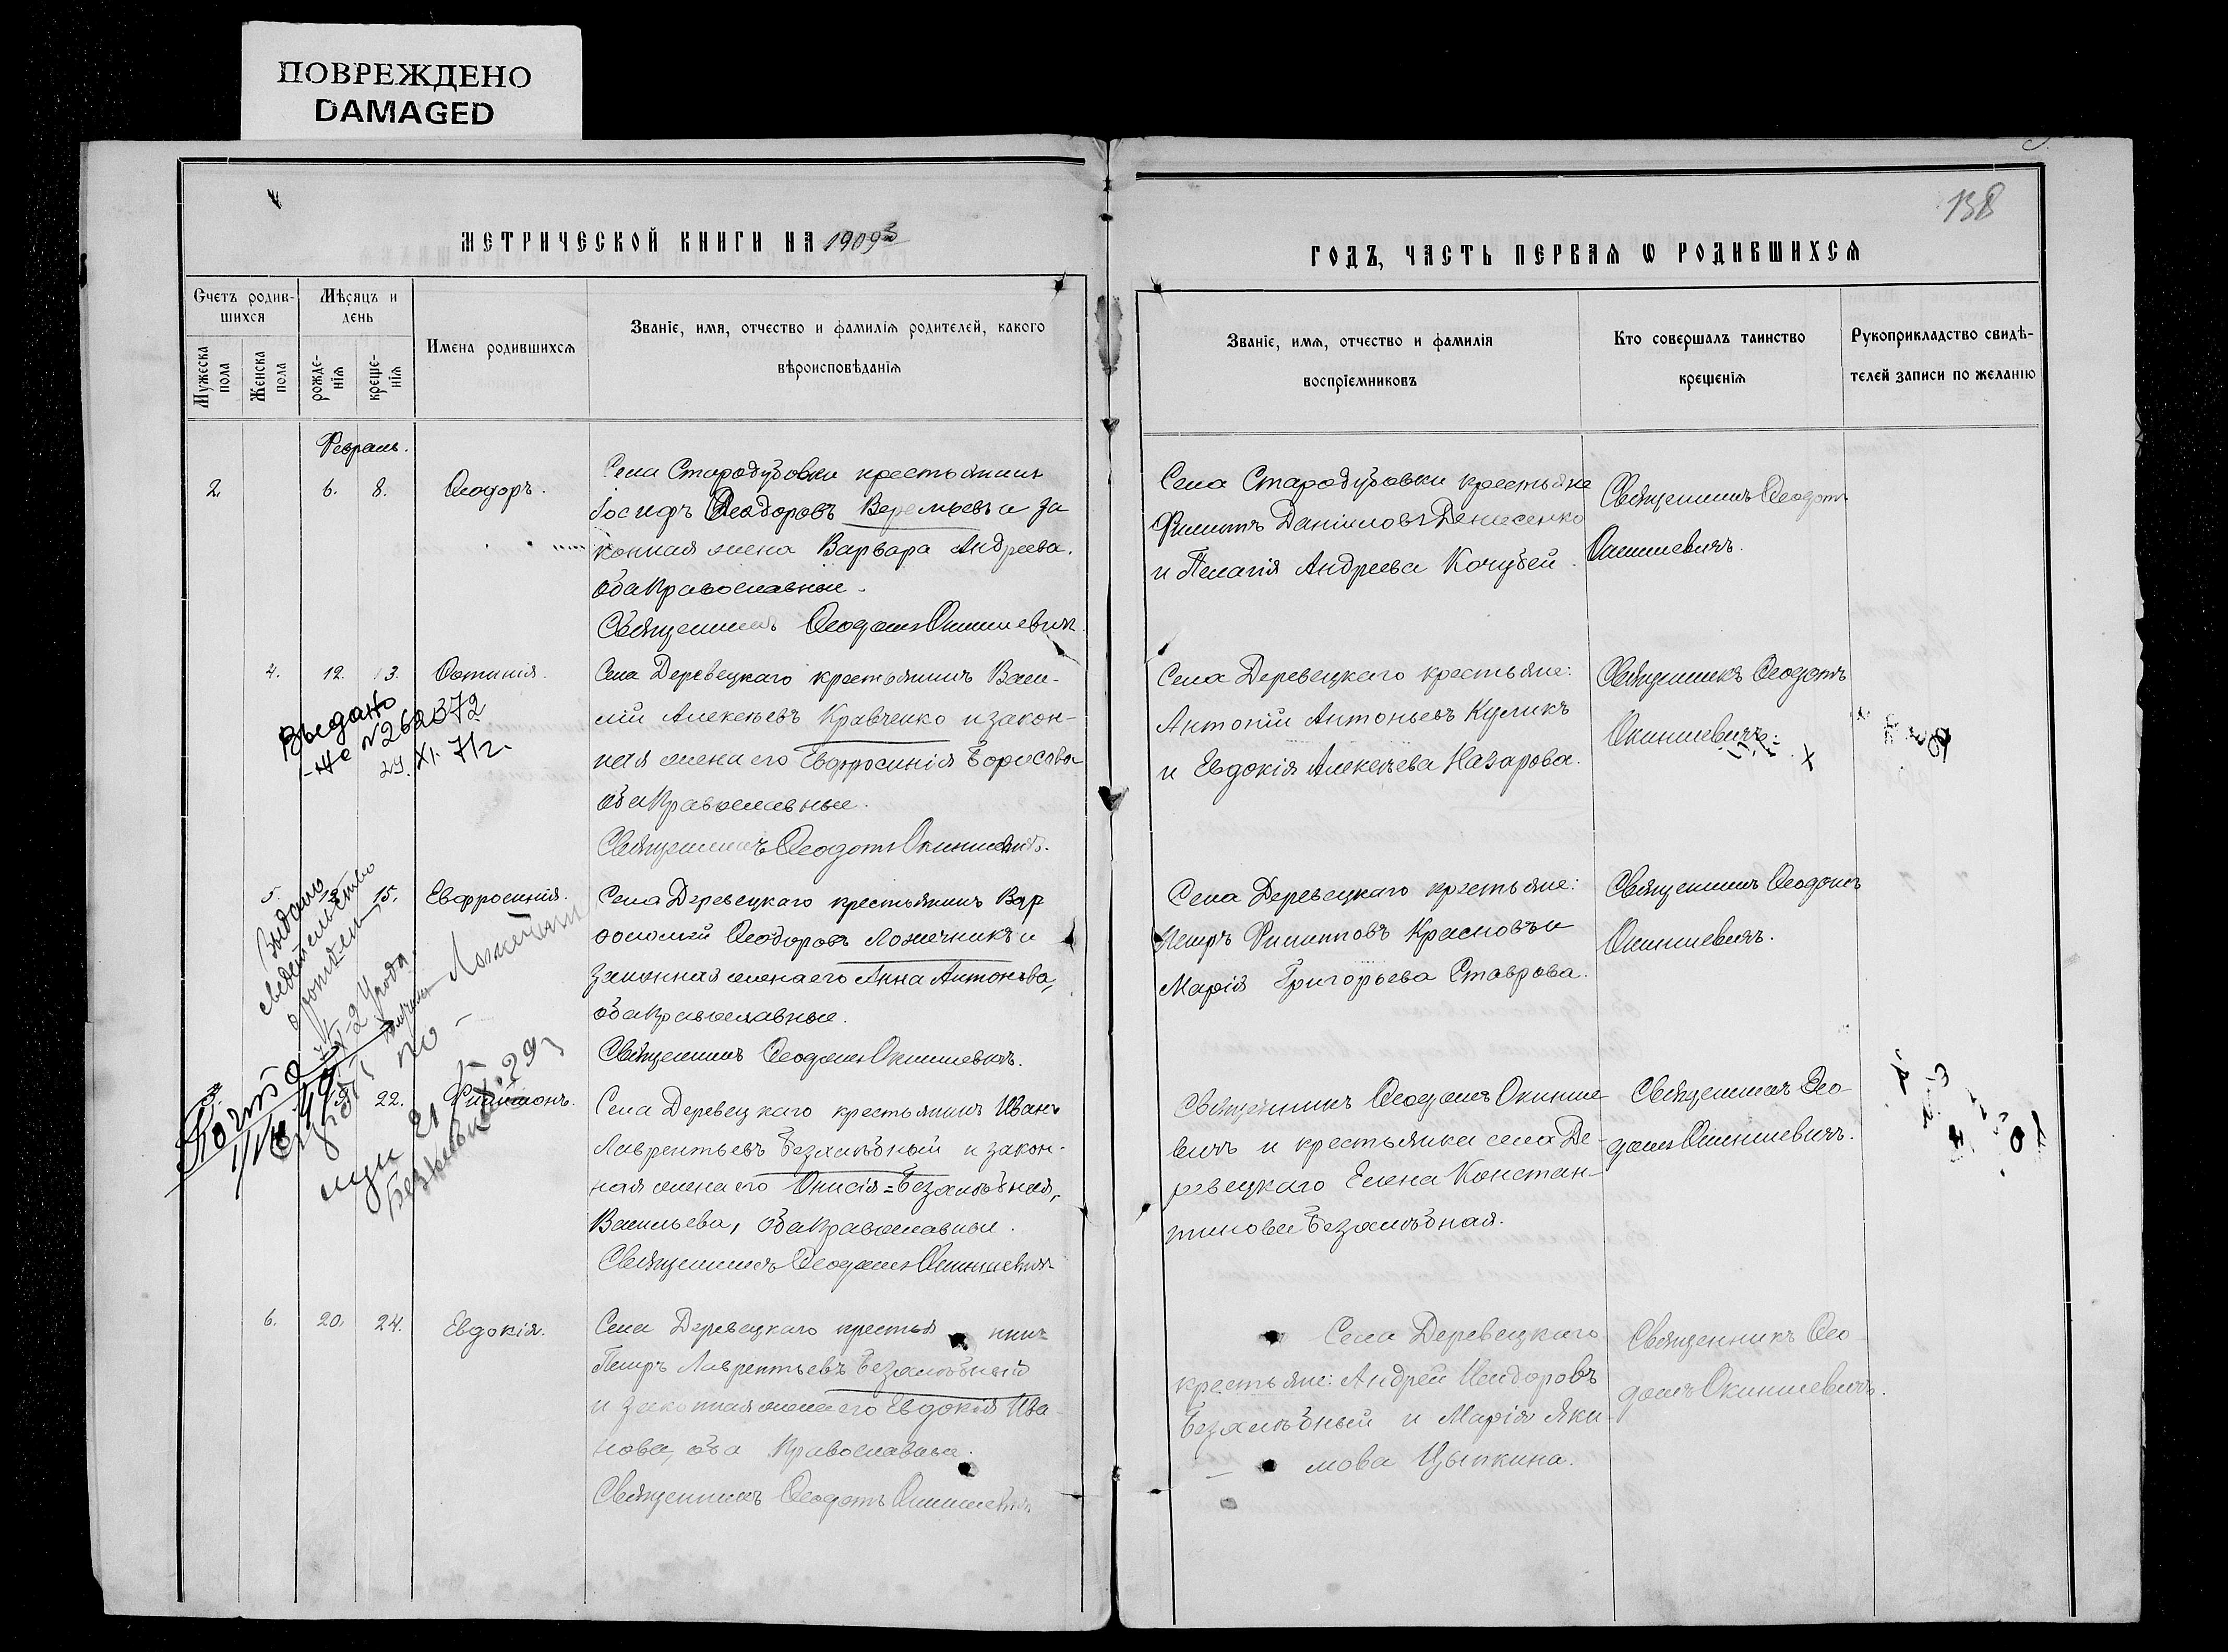 ПОВРЕЖДЕНО
DAMAGED
138
МЕТРИЧЕСКОЙ КНИГИ НА 1909й
ГОДЪ, ЧАСТЬ ПЕРВАЯ Ѡ РОДИВШИХСЯ
Счетъ родив-
шихся
Мужеска пола
Женска пола
Мѣсяцъ и
день
рожде-
нія
креще-
нія
Имена родившихся
Званіе, имя, отчество и фамилія родителей, какого
вѣроисповѣданія
Званіе, имя, отчество и фамилія
воспріемниковъ
Кто совершалъ таинство
крещенія
Рукоприкладство свидѣ-
телей записи по желанію
Февраль.
2. 6. 8. Ѳеодоръ.
Села Стародубовки крестьянинъ
Іосифъ Ѳеодоровъ Веремьевъ и за
конная жена Варвара Андреева.
оба православные.
Священникъ Ѳеодотъ Окиншевичъ
Села Стародубовки крестьяне
Филиппъ Даніиловъ Денисенко
и Пелагія Андреева Кочубей.
Священникъ Ѳеодотъ
Окиншевичъ.
4. 12. 13. Фотинія.
Выдано
№ 262372
29. XI. 71г.
Села Деревецкаго крестьянинъ Васи-
лій Алексѣевъ Кравченко и закон-
ная жена его Евфросинія Борисова
оба православные.
Священникъ Ѳеодотъ Окиншевичъ.
Села Деревецкаго крестьяне:
Антоній Антоньевъ Куликъ
и Евдокія Алексѣева Назарова.
Священникъ Ѳеодотъ
Окиншевичъ.
5. 13. 15. Евфросинія.
Выдано
свидетельство
о рождении
Села Деревецкаго крестьянинъ Вар
ѳоломей Ѳеодоровъ Ложечникъ и
законная жена его Анна Антонова,
оба православные.
Священникъ Ѳеодотъ Окиншевичъ.
Села Деревецкаго крестьяне:
Петръ Филипповъ Красновъ и
Марія Григорьева Ставрова.
Священникъ Ѳеодотъ
Окиншевичъ.
3. 22. Филимонъ.
Села Деревецкаго крестьянинъ Иванъ
Лаврентьевъ Безхлѣбный и закон-
ная жена его Онисія=Безхлѣбная,
Васильева, оба православные.
Священникъ Ѳеодотъ Окиншевичъ
Священникъ Ѳеодотъ Окинше
вичъ и крестьянка села Де-
ревецкаго Елена Констан-
тинова Безхлѣбная.
Священникъ Ѳео-
дотъ Окиншевичъ.
6. 20. 24. Евдокія.
Села Деревецкаго крестьянинъ
Петръ Лаврентьевъ Безхлѣбный
и законная жена его Евдокія Ива
нова, оба православные.
Священникъ Ѳеодотъ Окиншевичъ
Села Деревецкаго
крестьяне: Андрей Исидоровъ
Безхлѣбный и Марія Яки-
мова Цыпкина.
Священникъ Ѳео
дотъ Окиншевичъ.